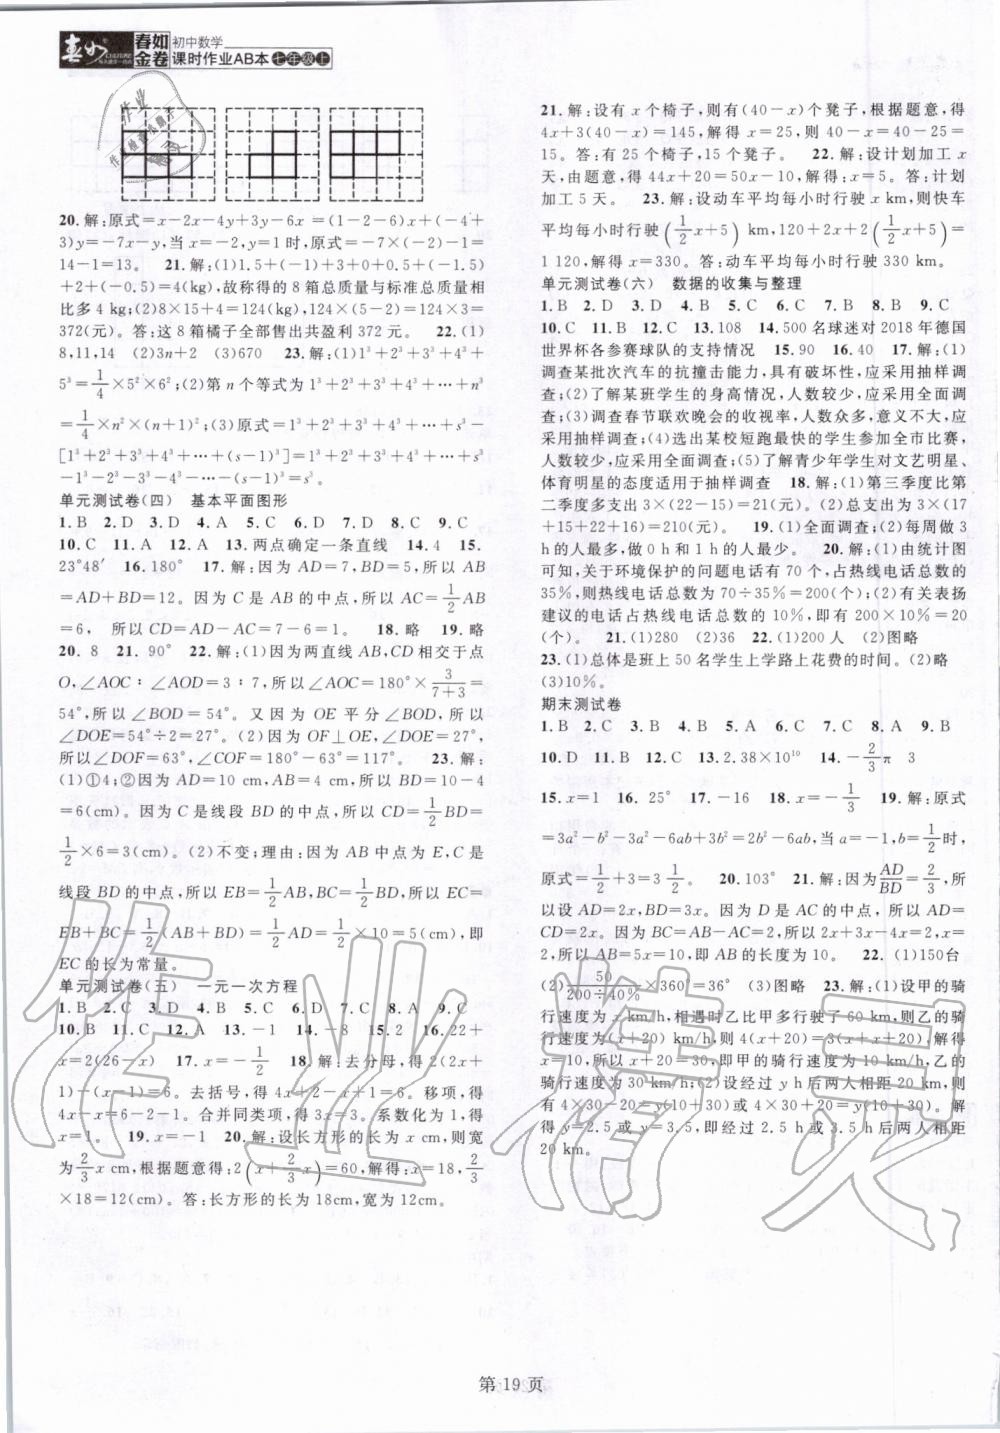 春如金卷 初中数学
课时作业AB本 七年级上
20. 解:原式=x-2x-4y+3y-6x=(1-2-6)x+(-4+
3)y=-7x-y,当x=-2,y=1时,原式=-7×(-2)-1=
14-1=13。 21. 解:(1)1.5+(-1)+3+0+0.5+(-1.5)
+2+(-0.5)=4(kg),故称得的8箱总质量与标准总质量相
比多4 kg;(2)8×15+4=124(kg),124×(10-7)=124×3=
372(元)。答:这8箱橘子全部售出共盈利372元。 22. (1)
8,11,14 (2)3n+2 (3)670 23. 解:(1)1³+2³+3³+4³+
5³=1/4×5²×6²;(2)第n个等式为1³+2³+3³+4³+…+n³
=1/4×n²×(n+1)²;(3)原式=1³+2³+3³+4³+…+s³-
[1³+2³+3³+4³+…+(s-1)³]=1³+2³+3³+4³+…+s³
-1³-2³-3³-4³-…-(s-1)³=s³。
单元测试卷(四) 基本平面图形
1. B 2. D 3. D 4. A 5. C 6. D 7. D 8. C 9. C
10. C 11. A 12. A 13. 两点确定一条直线 14. 4 15.
23°48′ 16. 180° 17. 解:因为AD=7,BD=5,所以AB
=AD+BD=12。因为C是AB的中点,所以AC=1/2AB
=6, 所以CD=AD-AC=7-6=1。 18. 略 19. 略
20. 8 21. 90° 22. 解:(1)因为两直线AB,CD相交于点
O,∠AOC∶∠AOD=3∶7,所以∠AOC=180°×3/(7+3)=
54°,所以∠BOD=54°。又因为OE平分∠BOD,所以
∠DOE=54°÷2=27°。(2)因为OF⊥OE,∠DOE=27°,
所以∠DOF=63°,∠COF=180°-63°=117°。 23. 解:
(1)①4;②因为AD=10 cm,AB=4 cm,所以BD=10-4
=6(cm)。因为C是线段BD的中点,所以CD=1/2BD=
1/2×6=3(cm)。(2)不变;理由:因为AB中点为E,C是
线段BD的中点,所以EB=1/2AB,BC=1/2BD,所以EC=
EB+BC=1/2(AB+BD)=1/2AD=1/2×10=5(cm),即
EC的长为常量。
单元测试卷(五) 一元一次方程
1. B 2. B 3. D 4. B 5. D 6. C 7. B 8. A 9. C
10. B 11. C 12. A 13. -1 14. -8 15. 2 16. 22+
x=2(26-x) 17. x=-1/2 18. 解:去分母,得2(2x+
1)-(x-1)=6。去括号,得4x+2-x+1=6。移项,得
4x-x=6-2-1。合并同类项,得3x=3。系数化为1,得
x=1。 19. x=-1 20. 解:设长方形的长为x cm,则宽
为2/3x cm,根据题意得:2(x+2/3x)=60,解得:x=18,2/3
×18=12(cm)。答:长方形的长为18cm,宽为12cm。
21. 解:设有x个椅子,则有(40-x)个凳子,根据题意,得
4x+3(40-x)=145,解得x=25,则40-x=40-25=
15。答:有25个椅子,15个凳子。 22. 解:设计划加工x
天,由题意,得44x+20=50x-10,解得:x=5。答:计划
加工5天。 23. 解:设动车平均每小时行驶x km,则快车
平均每小时行驶(1/2x+5) km,120+2x+2(1/2x+5)=
1 120,解得x=330。答:动车平均每小时行驶330 km。
单元测试卷(六) 数据的收集与整理
1. B 2. D 3. D 4. C 5. C 6. C 7. B 8. B 9. C
10. C 11. B 12. D 13. 108 14. 500名球迷对2018年德国
世界杯各参赛球队的支持情况 15. 90 16. 40 17. 解:(1)
调查某批次汽车的抗撞击能力,具有破坏性,应采用抽样调
查;(2)了解某班学生的身高情况,人数较少,应采用全面调
查;(3)调查春节联欢晚会的收视率,人数众多,意义不大,应
采用抽样调查;(4)选出某校短跑最快的学生参加全市比赛,
人数较少,应采用全面调查;(5)了解青少年学生对文艺明星、
体育明星的态度适用于抽样调查 18. 解:(1)第三季度比第
二季度多支出3×(22-15)=21(元)。(2)共支出3×(17
+15+22+16)=210(元)。 19. (1)全面调查;(2)每周做3
h的人最多,做0 h和1 h的人最少。 20. 解:(1)由统计图
可知,关于环境保护的问题电话有70个,占热线电话总数的
35%,则热线电话总数为70÷35%=200(个);(2)有关表扬
建议的电话占热线电话总数的10%,即有200×10%=20
(个)。 21. (1)280 (2)36 22. (1)200人 (2)图略
23. (1)总体是班上50名学生上学路上花费的时间。(2)略
(3)10%。
期末测试卷
1. B 2. C 3. B 4. B 5. A 6. C 7. C 8. A 9. B
10. D 11. B 12. C 13. 2.38×10¹⁰ 14. -2/3π 3
15. x=1 16. 25° 17. -16 18. x=-1/3 19. 解:原式
=3a²-b²-3a²-6ab+3b²=2b²-6ab,当a=-1,b=1/2时,
原式=1/2+3=3 1/2。 20. 103° 21. 解:因为AD/BD=2/3,所
以设AD=2x,BD=3x。因为D是AC的中点,所以AD=
CD=2x。因为BC=AB-AC=2,所以2x+3x-4x=x=
2,所以AB=5x=10,即AB的长度为10。 22. (1)150台
(2)50/(200÷40%)×360°=36° (3)图略 23. 解:(1)设甲的骑
行速度为x km/h,相遇时乙比甲多行驶了60 km,则乙的骑
行速度为(x+20) km/h,则4(x+20)=3(x+x+20),解
得x=10,所以x+20=30,即甲的骑行速度为10 km/h,乙的
骑行速度为30 km/h;(2)设经过y h后两人相距20 km,则
有4×30-20=y(10+30)或4×30+20=y(10+30)。解
得y=2.5或y=3.5,即经过2.5 h或3.5 h后两人相距
20 km。
作业精灵
第19页